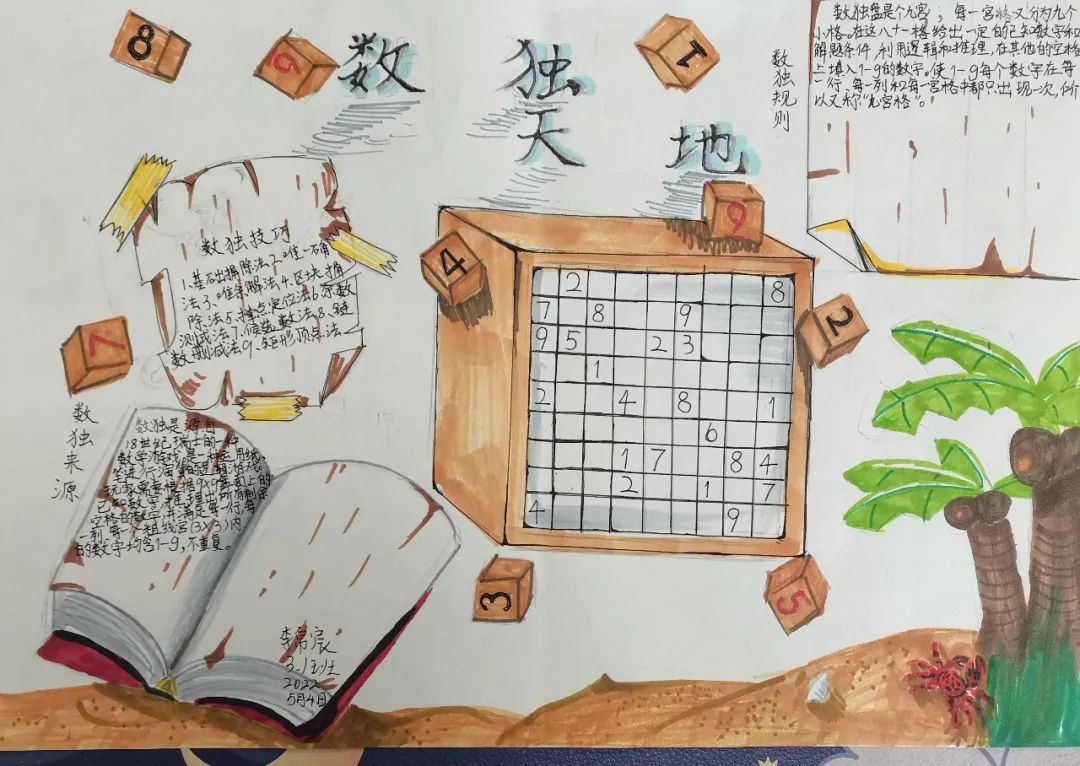 数独
天地
8
6
1
数独规则
数独盘是个九宫；每一宫格又分为九个
小格。在这八十一格给出一定的已知数字和
解题条件，利用逻辑和推理，在其他的空格
上填入1-9的数字。使1-9每个数字在每
一行、每一列和每一宫格中都只出现一次，所
以又称"九宫格"。
数独技巧
1、基础排除法2、唯一
法3、唯余解法4、区块排
除法5、法6、余数
测试法7、候选数法8、链
数删减法9、矩形顶点法
4
9
2
7
3
5
2 8
7 8 9
9 5 2 3
1
2 4 8 1
6
1 7 8 4
2 1 7
4 9
数独来源
数独是源自
18世纪瑞士的一种
数学游戏是一种运用纸
笔进行演算的逻辑游戏。
玩家需要根据9×9盘面上的
已知数字，推理出所有剩余
空格的数字，并满足每一行，每
一列，每一个粗线宫(3×3)内
的数字均含1-9，不重复。
3.1班
2022
5月4日